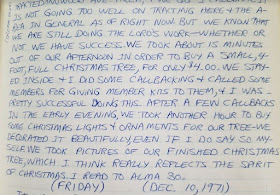 IS NOT GOING TOO WELL ON TRACTING HERE & THE A-
REA IN GENERAL AS OF RIGHT NOW. BUT WE KNOW THAT
WE ARE STILL DOING THE LORD'S WORK—WHETHER OR
NOT WE HAVE SUCCESS. WE TOOK ABOUT 15 MINUTES
OUT OF OUR AFTERNOON IN ORDER TO BUY A SMALL, 4-
FOOT, FULL CHRISTMAS TREE, FOR ONLY $4.00. WE STAY-
ED INSIDE & I DID SOME CALLBACKING & CALLED SOME
MEMBERS FOR GIVING MEMBER KITS TO THEM, & I WAS
PRETTY SUCCESSFUL DOING THIS. AFTER A FEW CALLBACKS
IN THE EARLY EVENING, WE TOOK ANOTHER HOUR TO BUY
SOME CHRISTMAS LIGHTS & ORNAMENTS FOR OUR TREE—WE
DECORATED IT BEAUTIFULLY EVEN IF I DO SAY SO MY-
SELF. WE TOOK PICTURES OF OUR FINISHED CHRISTMAS
TREE, WHICH I THINK REALLY REFLECTS THE SPIRIT
OF CHRISTMAS. I READ TO ALMA 30.
(FRIDAY) (DEC. 10, 1971)